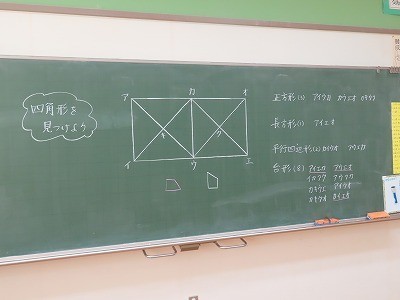 四角形を
見つけよう
ア
カ
オ
キ
ク
イ
ウ
エ
正方形(3) アイウカ カウエオ カキウク
長方形(1) アイエオ
平行四辺形(2) カイウオ アウエカ
台形(8) アイエカ アウエオ
カキウエ アイウオ